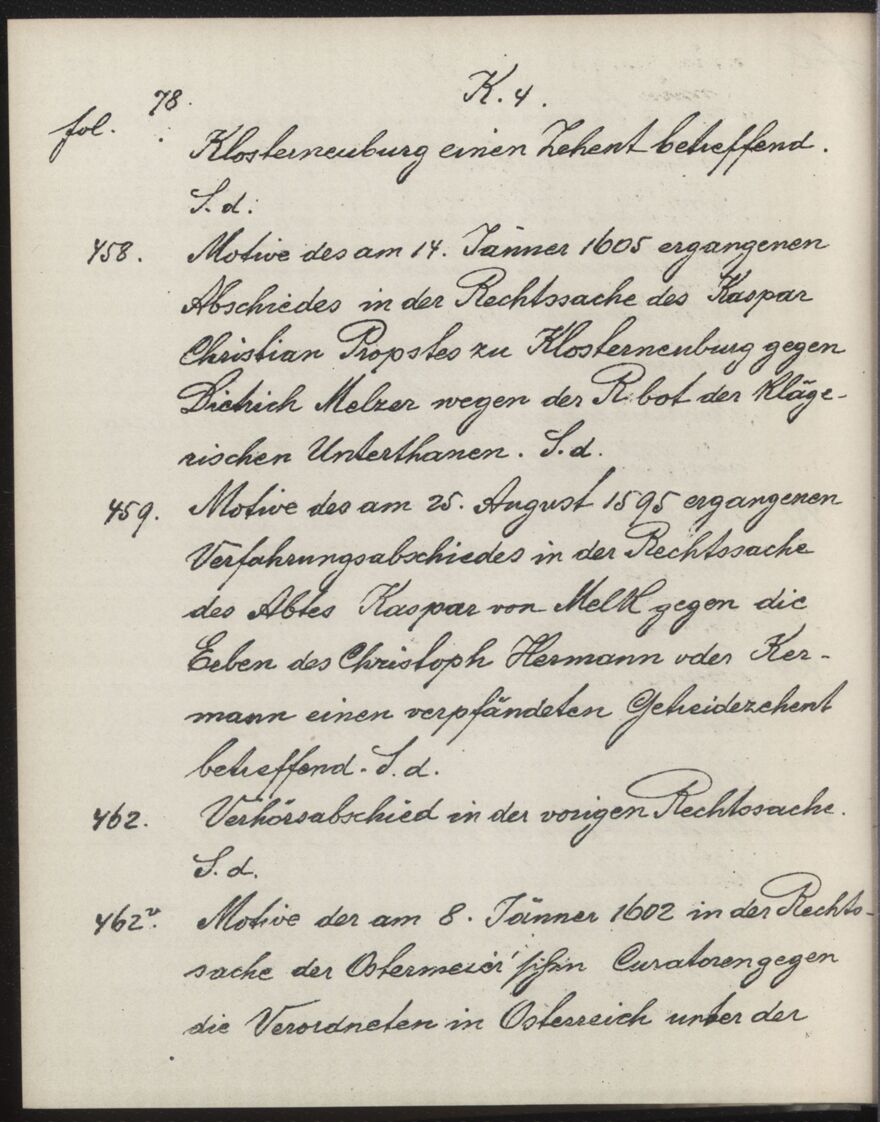 78. K. 4.
fol.
Klosterneuburg einen Zehent betreffend.
S. d.
458. Motive des am 14. Jänner 1605 ergangenen
Abschiedes in der Rechtssache des Kaspar
Christian Propstes zu Klosterneuburg gegen
Dietrich Melzer wegen der Robot der kläge-
rischen Unterthanen. S. d.
459. Motive des am 25. August 1595 ergangenen
Verfahrungsabschiedes in der Rechtssache
des Abtes Kaspar von Melk gegen die
Erben des Christoph Hermann oder Ker-
mann einen verpfändeten Getreidezehent
betreffend. S. d.
462. Verhörsabschied in der vorigen Rechtssache.
S. d.
462v. Motive der am 8. Jänner 1602 in der Rechts-
sache der Ostermeier'schen Curatoren gegen
die Verordneten in Österreich unter der